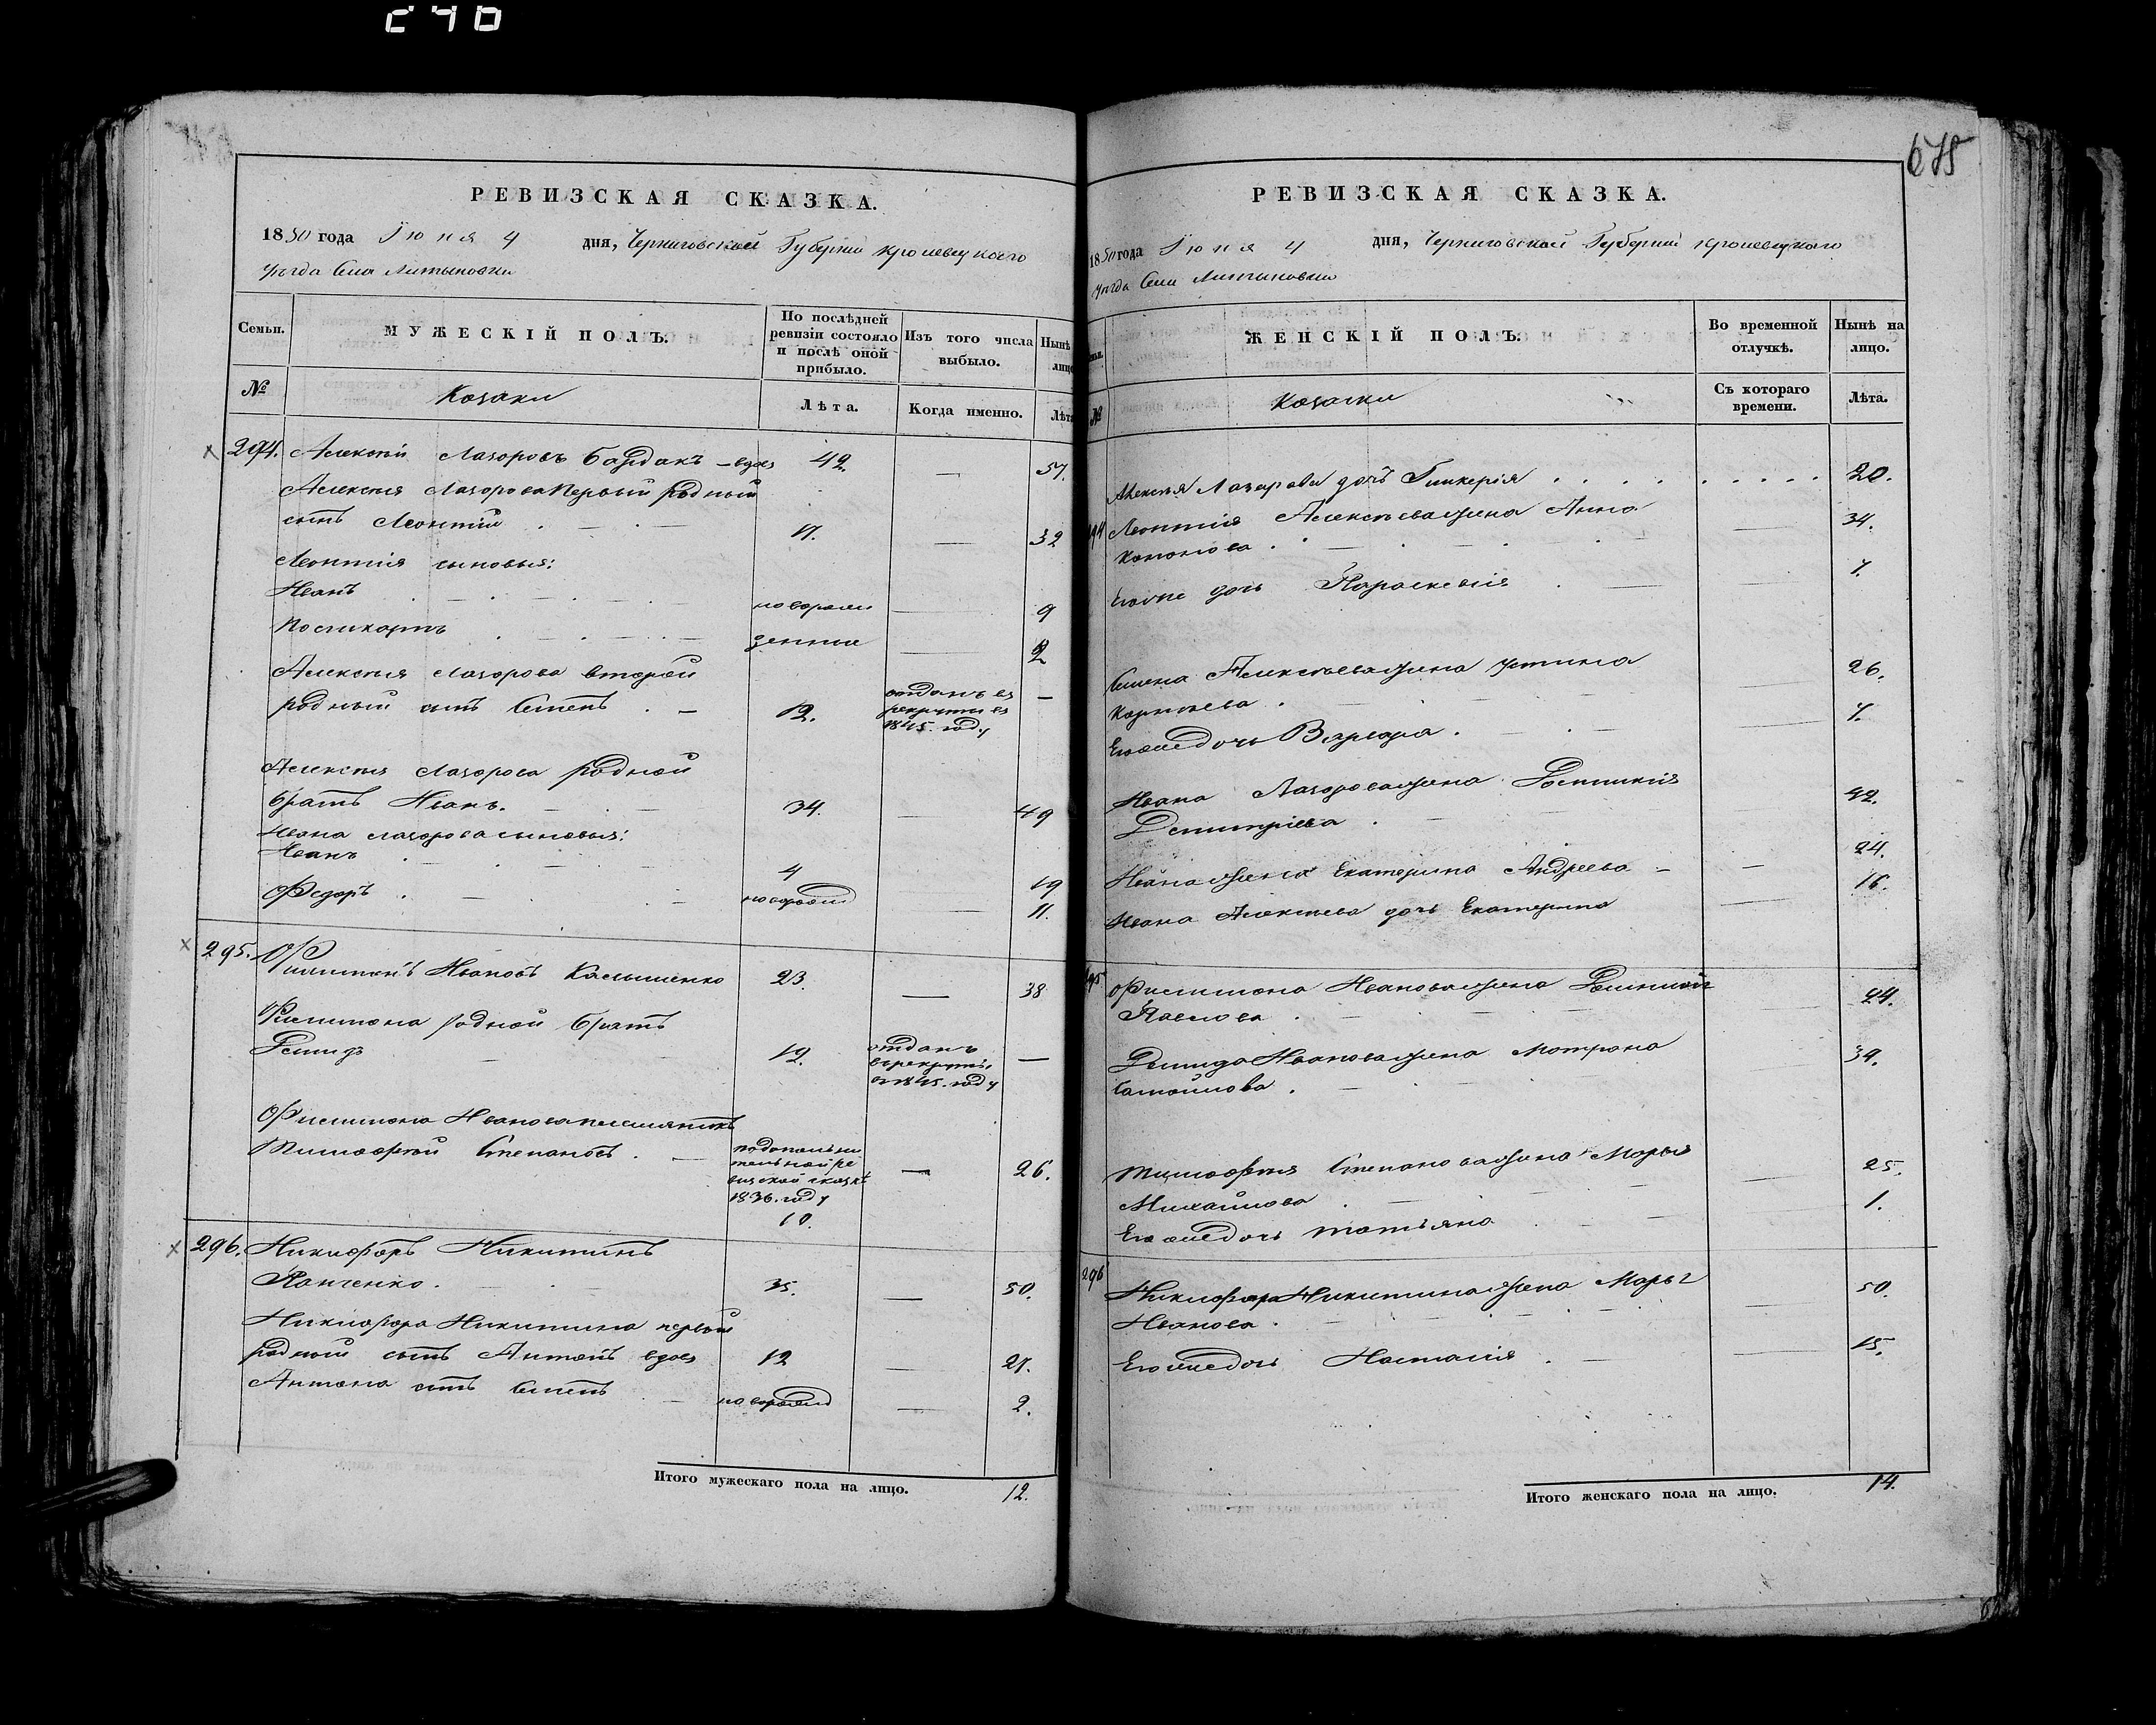 678
РЕВИЗСКАЯ СКАЗКА.
1850 года Іюня 4 дня, Черниговской Губерніи Кролевецкаго
уѣзда Села Литвиновки
Семьи.
МУЖЕСКІЙ ПОЛЪ.
По послѣдней
ревизіи состояло
и послѣ оной
прибыло.
Изъ того числа
выбыло.
Нынѣ
лицо
№
Козаки
Лѣта.
Когда именно.
Лѣта
294. Алексѣй Лазоровъ — вдов 42. — 57.
Алексѣя Лазорова Первый родный
сынъ Леонтій 17. — 32
Леонтія сыновья:
Иванъ новорож — 9
денные — 2
Алексѣя Лазорова второй
родный сынъ Семенъ 12. отданъ въ
рекруты въ
1845. году —
Алексѣя Лазорова родной
братъ Иванъ. 34. — 49
Ивана Лазорова сыновья:
Иванъ 4 19
Федоръ новорожд — 11.
295. Филимонъ Ивановъ 23. — 38
Филимона родной братъ
12. отданъ
въ рекруты
въ 1845. году —
Филимона Иванова племянникъ
Тимофей Степановъ по дополни
тельной ре
визской сказкѣ
1836. году
10. — 26.
296. Никифоръ Никитинъ
Панченко. 35. — 50.
Никифора Никитина первый
родный сынъ Антонъ вдов 12 — 27.
Антона сынъ Семенъ новорожд — 2.
Итого мужескаго пола на лицо. 12.
РЕВИЗСКАЯ СКАЗКА.
1850 года Іюня 4 дня, Черниговской Губерніи Кролевецкаго
уѣзда Села Литвиновки
ЖЕНСКІЙ ПОЛЪ.
Во временной
отлучкѣ.
Нынѣ на
лицо.
№
Козачки
Съ котораго
времени.
Лѣта.
Алексѣя Лазарова дочь Гликерія 20.
294 Леонтія Алексѣева жена Анна
Кононова — 34.
Его же дочь Параскевія — 7.
Семена Алексѣева жена Устина
Карпѣева — 26.
Его же дочь Варвара — 7.
Ивана Лазорова жена
Дмитріева 42.
Ивана жена Екатерина Андреева — 24.
Ивана Алексѣева дочь Екатерина — 16.
295 Филимона Иванова жена
Павлова 44.
Иванова жена Матрона
Самойлова 39.
Тимофея Степанова жена Марья
Михайлова — 25.
Его же дочь Татьяна 1.
296 Никифора Никитина жена Марья
Иванова — 50.
Его же дочь Настасія 15.
Итого женскаго пола на лицо. 14.